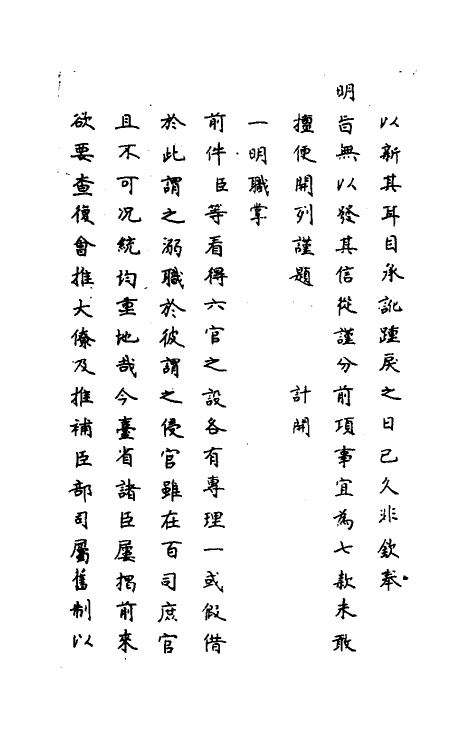 以新其耳目承訛踵戾之日已久非欽奉
明旨無以發其信從謹分前項事宜為七款未敢
擅便開列謹題　計開
一明職掌
前件臣等看得六官之設各有專理一或假借
於此謂之溺職於彼謂之侵官雖在百司庶官
且不可況統均重地哉今臺省諸臣屢揭前來
欲要查復會推大僚及推補臣部司屬舊制以